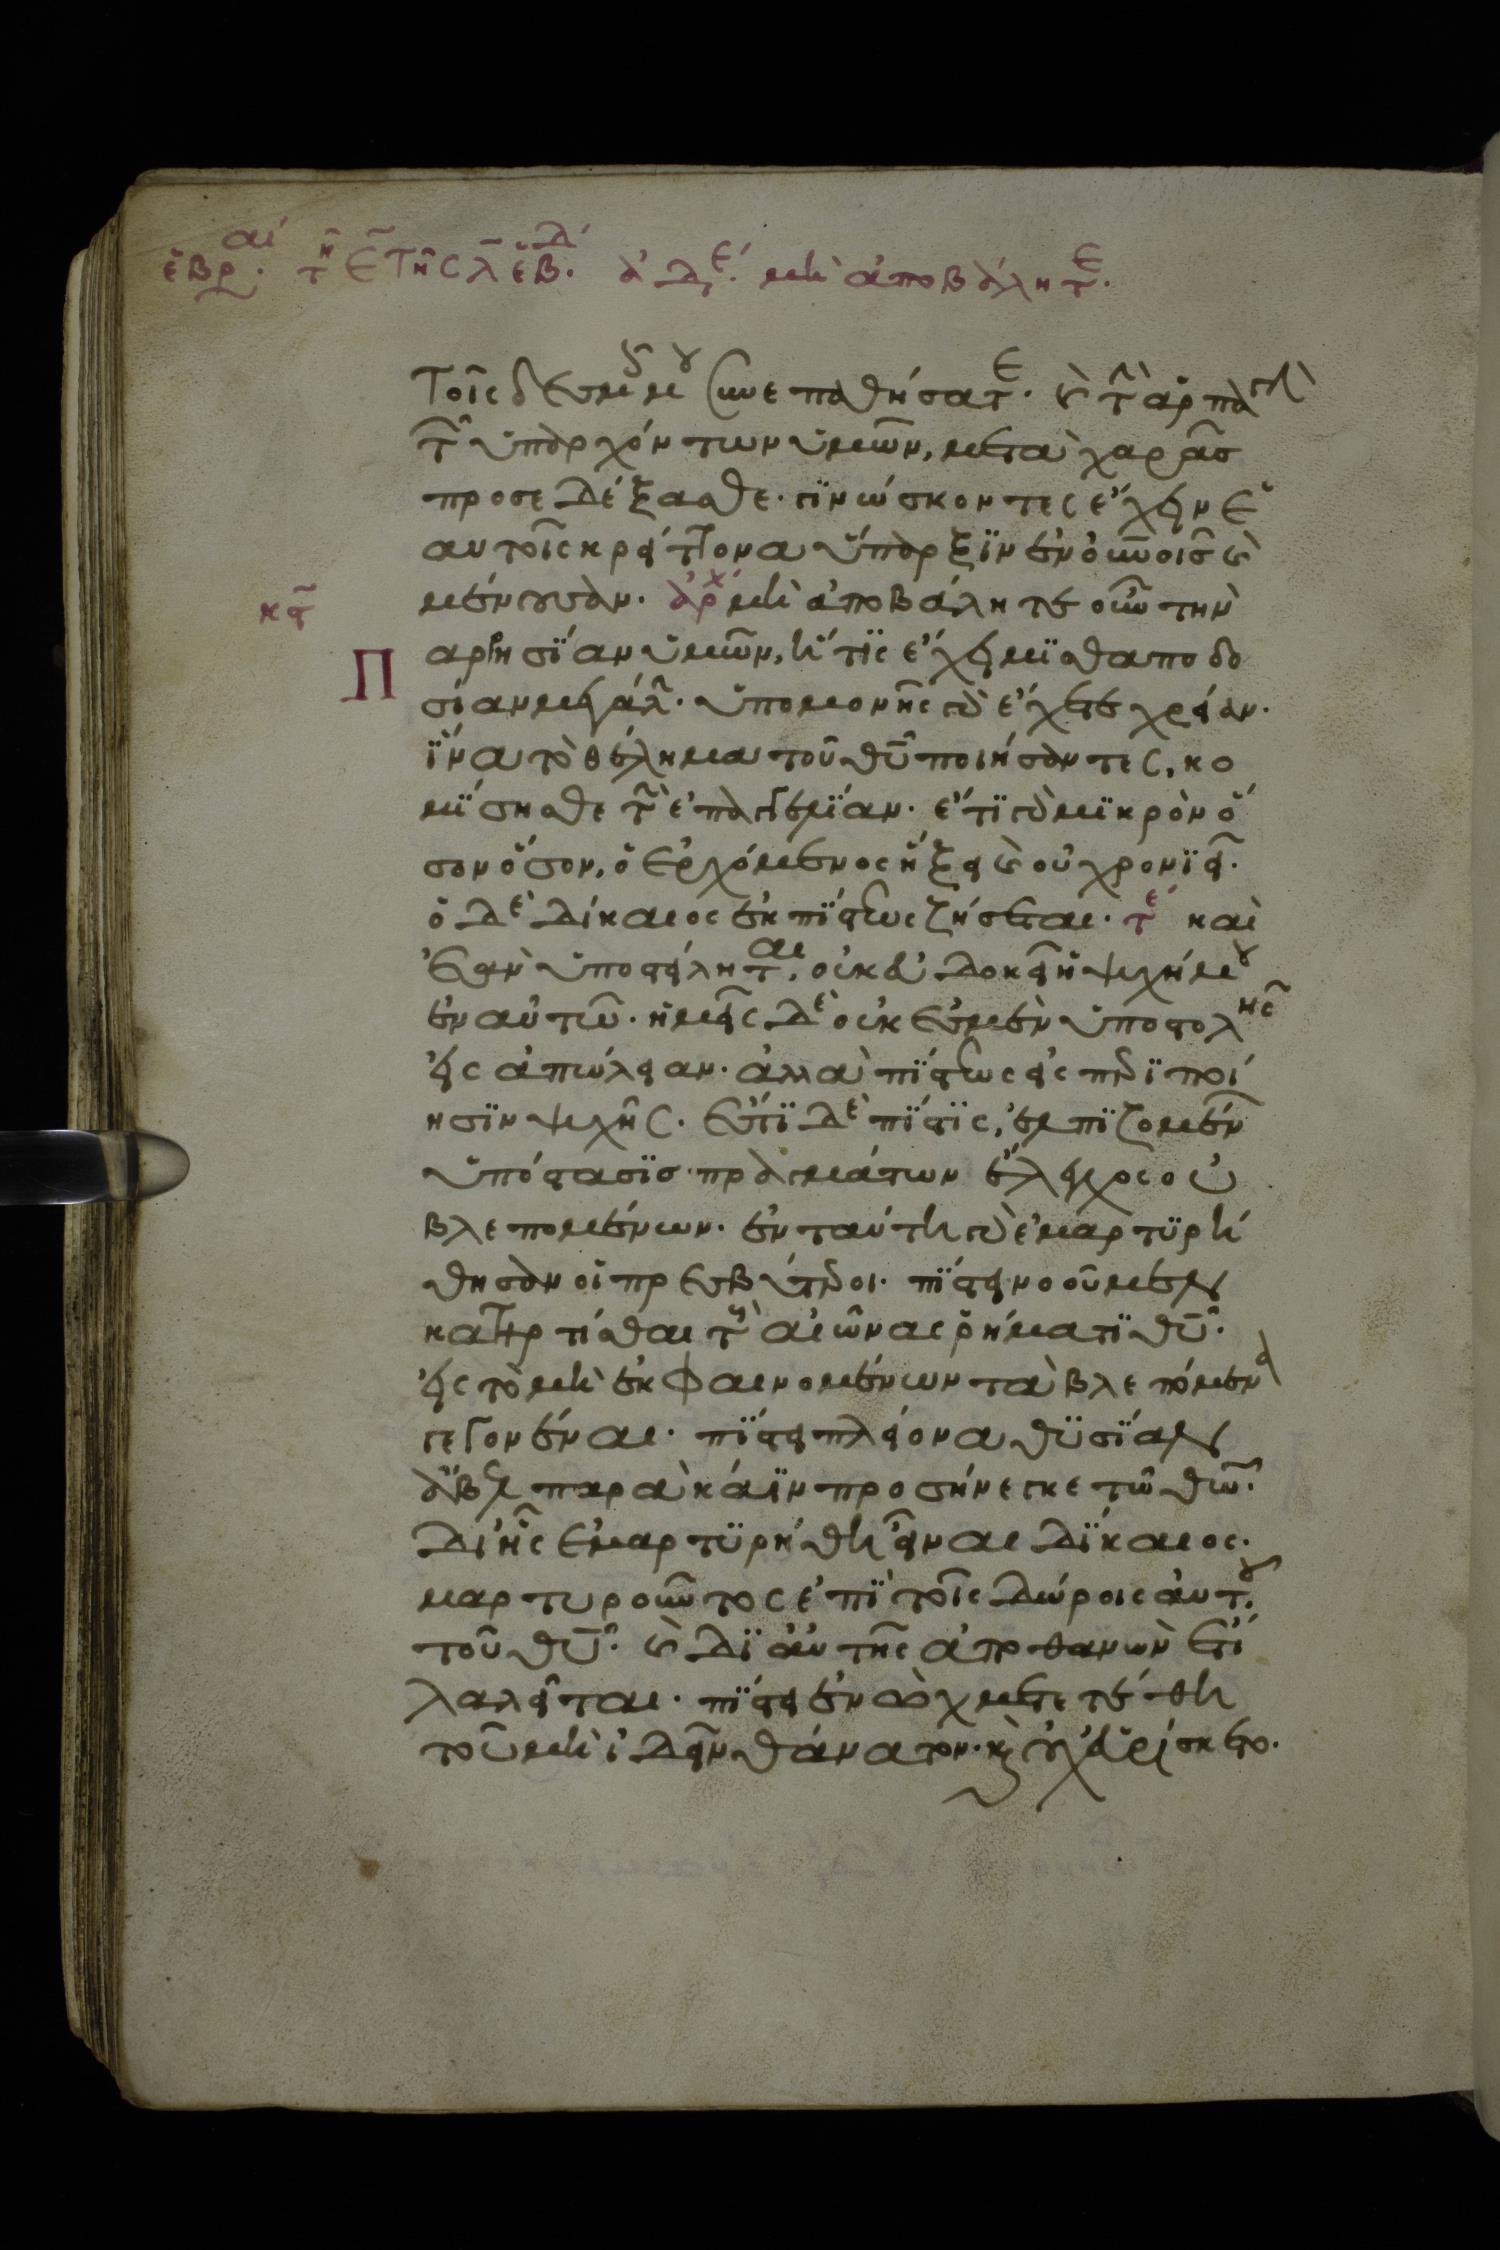 ἑβραί. τῆ ε τῆς λ ἑβδ. ἀδε. μὴ ἀποβάλητε.
τοῖς δεσμοῖς μου συνεπαθήσατε. καὶ τὴν ἁρπαγὴν
τῶν ὑπαρχόντων ὑμῶν, μετὰ χαρᾶς
προσεδέξασθε. γϊνώσκοντες ἔχειν ἑ
αυτοῖς κρείττονα ὕπαρξϊν ἐν οὐνοῖς καὶ
μένουσαν. ἀρχ μὴ ἀποβάλητε οὖν τὴν
κε
Παρρησΐαν ὑμῶν, ἥτϊς ἔχει μϊσθαποδο
σίαν μεγάλην. ὑπομονῆς γὰρ ἔχετε χρείαν.
ἵνα τὸ θέλημα τοῦ θῦ ποιήσαντες, κο
μΐσησθε τὴν ἐπαγγελΐαν. ἔτϊ γὰρ μϊκρὸν ὅ
σον ὅσον, ὁ ἐρχόμενος ἥξει καὶ οὐ χρονϊεῖ.
ὁ δὲ δίκαιος ἐκ πΐστεως ζήσεται. τε καὶ
ἐὰν ὑποστείληται, οὐκ εὐδοκεῖ ἡ ψυχή μου
ἐν αὐτῶ. ἡμεῖς δὲ οὐκ ἐσμὲν ὑποστολῆς
εἰς ἀπώλειαν. ἀλλὰ πΐστεως εἰς περϊποί
ησϊν ψυχῆς. ἔστϊ δὲ πΐστϊς, ἐλπϊζομένων
ὑπόστασϊς πραγμάτων ἔλεγχος οὐ
βλεπομένων. ἐν ταύτη γὰρ ἐμαρτϋρή
θησαν οἱ πρεσβύτεροι. πΐστει νοοῦμεν
κατηρτίσθαι τοὺς αἰῶνας ῥήματϊ θῦ.
εἰς τὸ μὴ ἐκ φαινομένων τὰ βλεπόμενα
γεγονέναι. πΐστει πλείονα θϋσΐαν
ἄβελ παρὰ κάϊν προσήνεγκε τῶ θῶ.
δι' ἧς ἐμαρτϋρήθη εἶναι δΐκαιος.
μαρτυροῦντος ἐπϊ τοῖς δώροις αὐτοῦ
τοῦ θῦ. καὶ δϊ αὐτῆς ἀποθανὼν ἔτι
λαλεῖται. πΐστει ἐνὼχ μετετέθη
τοῦ μὴ ἰδεῖν θάνατον. καὶ οὐχ εὑρίσκετο.